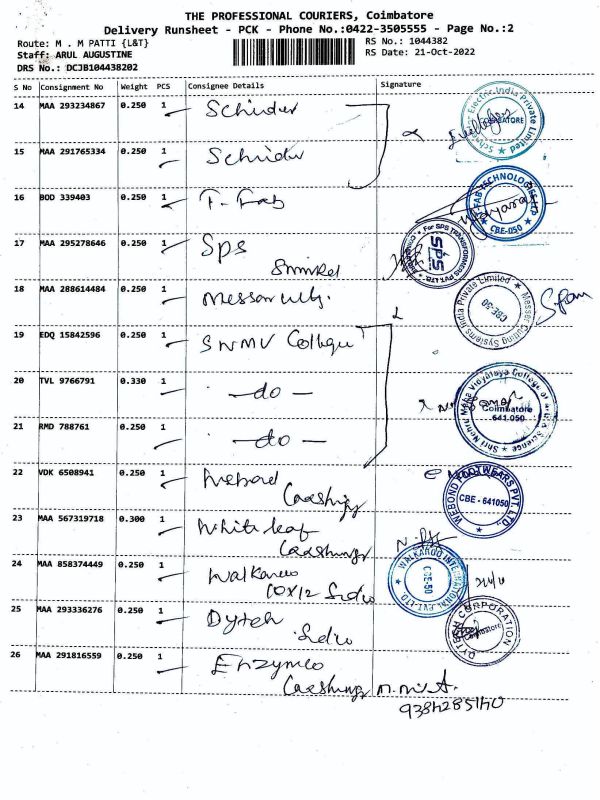 THE PROFESSIONAL COURIERS, Coimbatore
Delivery Runsheet - PCK - Phone No.:0422-3505555 - Page No.:2
Route: M . M PATTI {L&T} RS No.: 1044382
Staff: ARUL AUGUSTINE RS Date: 21-Oct-2022
DRS No.: DCJB104438202
S No Consignment No Weight PCS Consignee Details Signature
14 MAA 293234867 0.250 1
15 MAA 291765334 0.250 1
16 BOD 339403 0.250 1 T. Fab
17 MAA 295278646 0.250 1 Sps
18 MAA 288614484 0.250 1
19 EDQ 15842596 0.250 1 SNMV College
20 TVL 9766791 0.330 1 -do-
21 RMD 788761 0.250 1 -do-
22 VDK 6508941 0.250 1
23 MAA 567319718 0.300 1 White leaf
24 MAA 858374449 0.250 1 Walkaroo
25 MAA 293336276 0.250 1 Dytech
26 MAA 291816559 0.250 1
9384285140
Electric India Private Limited
COIMBATORE
FAB TECHNOLOGIES LTD
CBE-050
For SPS TRANSFORMERS PVT. LTD.
SPS
Messer Cutting Systems India Private Limited
CBE-50
Shri Nehru Maha Vidyalaya College of Arts & Science
Coimbatore
641-050
WEBOND FOOTWEARS PVT. LTD.
CBE - 641050
WALKAROO INTERNATIONAL PVT. LTD.
CBE-50
DYTECH CORPORATION
Coimbatore